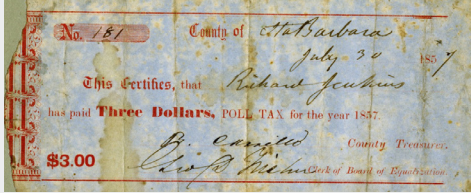 No. 181 County of Sta Barbara
July 30 1857
This Certifies, that Richard Jenkins
has paid Three Dollars, POLL TAX for the year 1857.
Carrillo County Treasurer,
$3.00 Geo D Clerk of Board of Equalization.